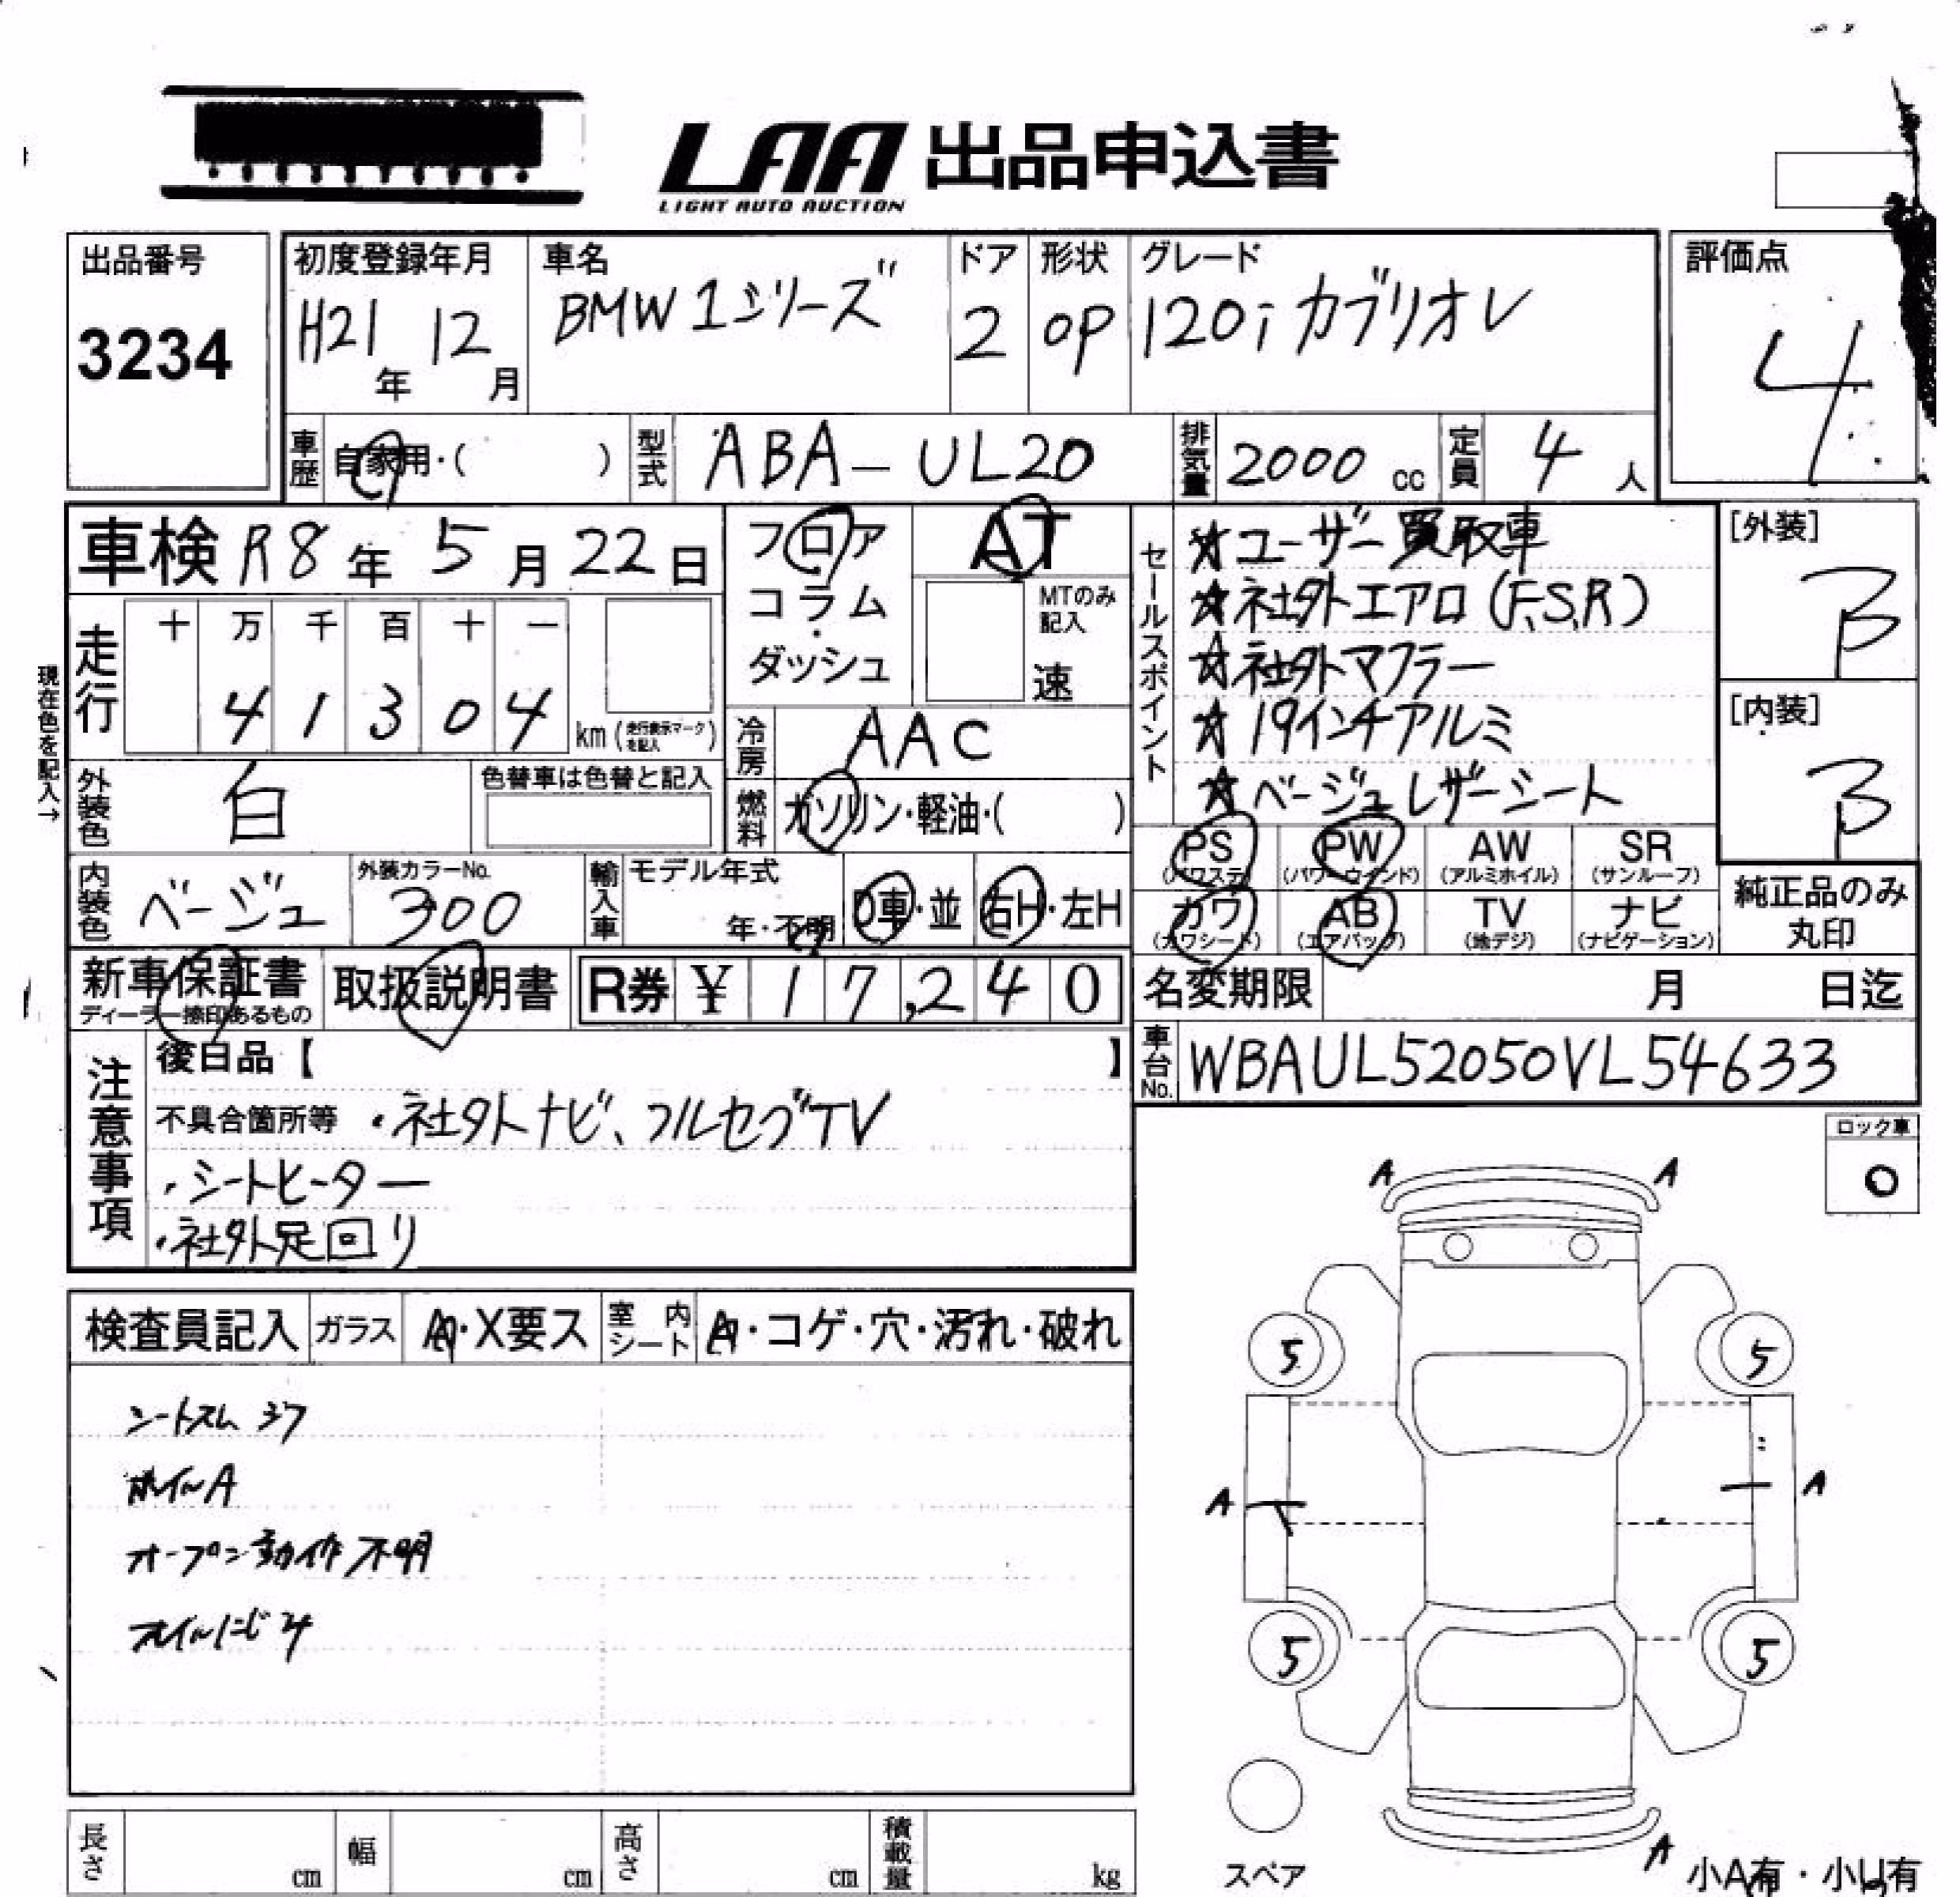 LAA 出品申込書
LIGHT AUTO AUCTION
出品番号
3234
初度登録年月
H21年 12月
車名
BMW 1シリーズ
ドア
2
形状
OP
グレード
120i カブリオレ
評価点
4
車歴 自家用・( )
型式 ABA-UL20
排気量 2000 cc
定員 4 人
車検 R8年 5月 22日
フロア・コラム・ダッシュ
AT
MTのみ記入
速
セールスポイント
☆ユーザー買取車
☆社外エアロ(F,S,R)
☆社外マフラー
☆19インチアルミ
☆ベージュレザーシート
[外装]
B
[内装]
B
現在色を記入→
走行
十 万 千 百 十 一
4 1 3 0 4
km (走行表示マークを記入)
冷房 AAC
外装色 白
色替車は色替と記入
燃料 ガソリン・軽油・( )
PS (パワステ)
PW (パワーウインド)
AW (アルミホイル)
SR (サンルーフ)
カワ (カワシート)
AB (エアバッグ)
TV (地デジ)
ナビ (ナビゲーション)
純正品のみ丸印
内装色 ベージュ
外装カラーNo.
300
輸入車
モデル年式
年・不明
D車・並
右H・左H
新車保証書
ディーラー捺印あるもの
取扱説明書
R券 ¥ 17,240
名変期限 月 日迄
車台No. WBAUL52050VL54633
注意事項
後日品【 】
不具合箇所等 ・社外ナビ、フルセグTV
・シートヒーター
・社外足回り
ロック車
O
検査員記入
ガラス A・X要ス
室内シート A・コゲ・穴・汚れ・破れ
シートスレ シワ
ホイルA
オープン動作不明
オイルにじみ
A A
5 5
A A
5 5
A
スペア
小A有・小U有
長さ cm
幅 cm
高さ cm
積載量 kg